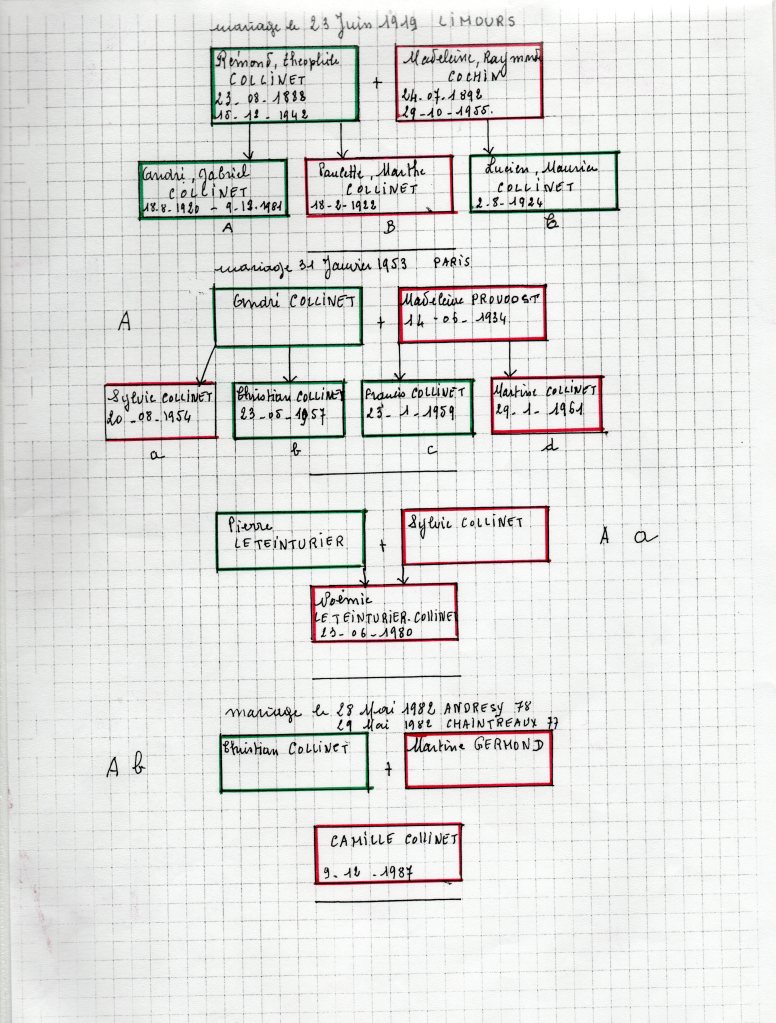 mariage le 23 Juin 1919 LIMOURS
Rémond, théophile
COLLINET
23-08-1888
15-12-1942
+
Madeleine, Raymonde
COCHIN
24-07-1892
29-10-1955.
André, Gabriel
COLLINET
18.8-1920 - 9-12-1981
A
Paulette, Marthe
COLLINET
18-2-1922
B
Lucien, Maurice
COLLINET
2-8-1924
C
mariage 31 Janvier 1953 PARIS
A
André COLLINET
+
Madeleine PROVOOST
14-06-1934
Sylvie COLLINET
20-08-1954
a
Christian COLLINET
23-05-1957
b
Francis COLLINET
23-1-1959
c
Martine COLLINET
29-1-1961
d
Pierre
LETEINTURIER
+
Sylvie COLLINET
A a
Noémie
LETEINTURIER-COllINET
23-06-1980
mariage le 28 Mai 1982 ANDRESY 78
29 Mai 1982 CHAINTREAUX 77
A b
Christian COLLINET
+
Martine GERMOND
CAMILLE COllINET
9-12-1987